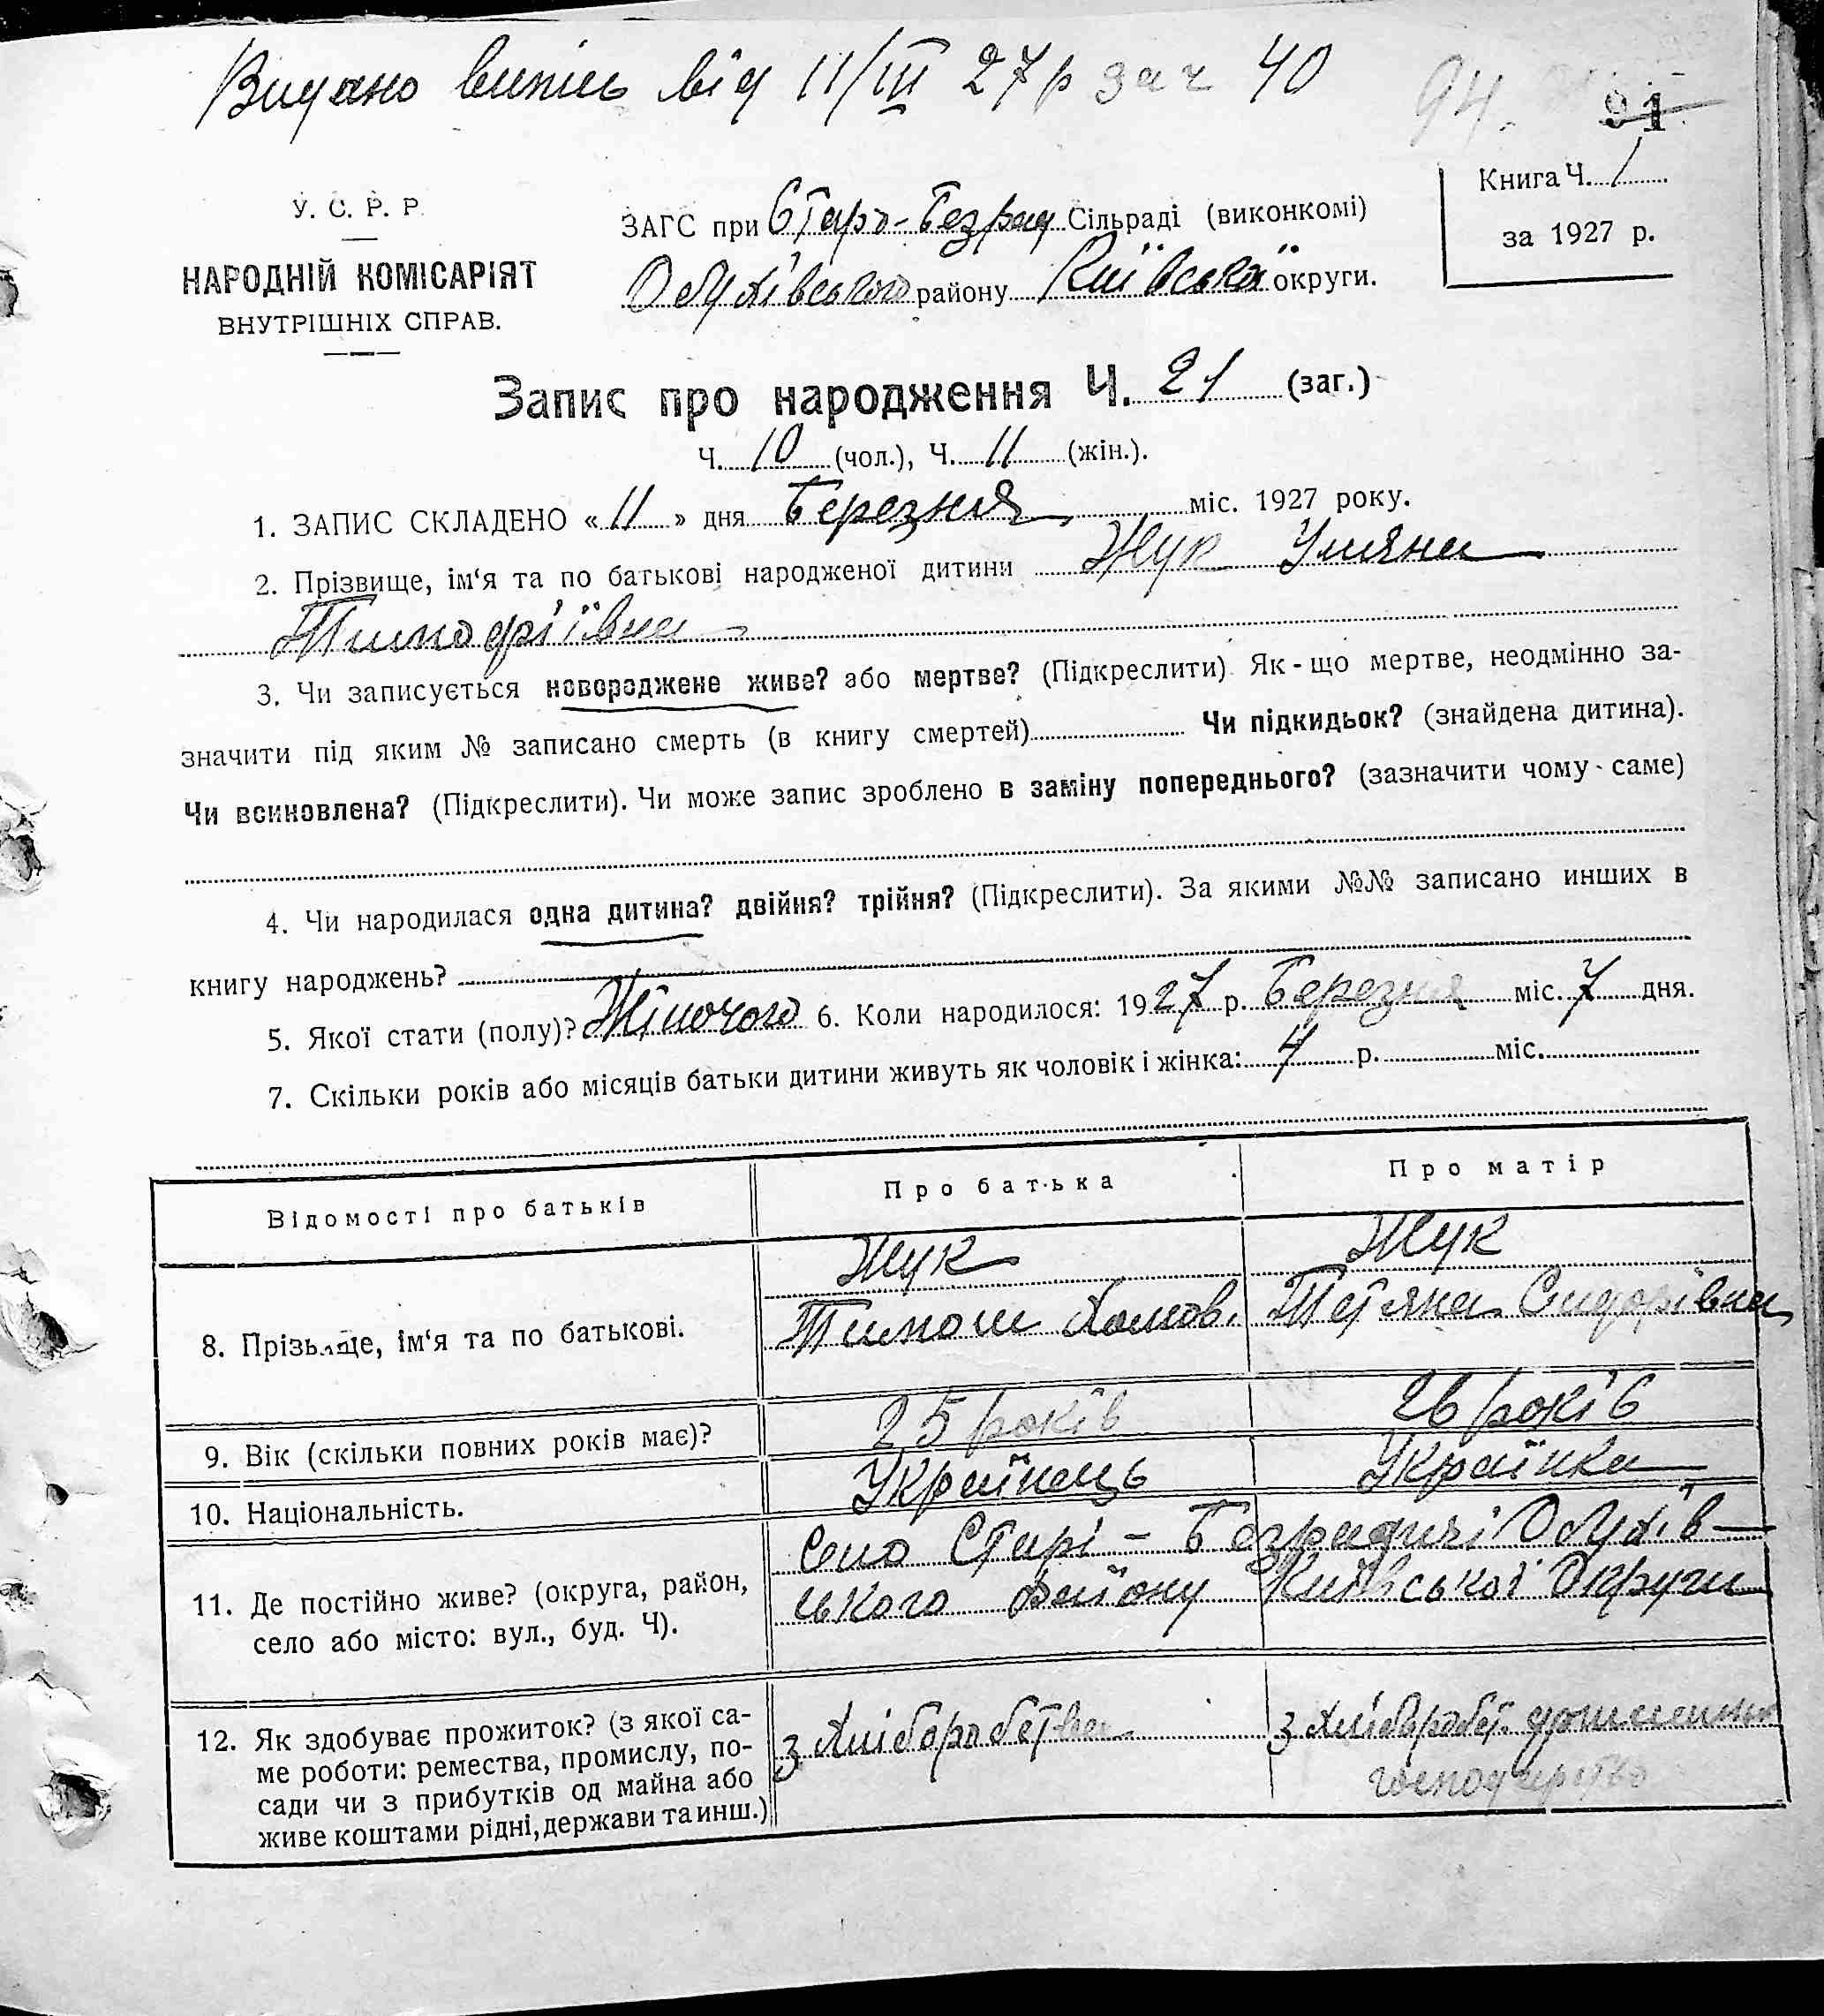 Видано випись від 11/III 27 р за ч 40
94.
91
У. С. Р. Р.
НАРОДНІЙ КОМІСАРІЯТ
ВНУТРІШНІХ СПРАВ.
ЗАГС при Старо-Безрад Сільраді (виконкомі)
Обухівського району Київської округи.
Книга Ч. 1
за 1927 р.
Запис про народження Ч. 21 (заг.)
Ч. 10 (чол.), Ч. 11 (жін.).
1. ЗАПИС СКЛАДЕНО «11» дня Березня міс. 1927 року.
2. Прізвище, ім‘я та по батькові народженої дитини Жук Уляна
Тимофіївна
3. Чи записується новороджене живе? або мертве? (Підкреслити). Як-що мертве, неодмінно за-
значити під яким № записано смерть (в книгу смертей) Чи підкидьок? (знайдена дитина).
Чи всиновлена? (Підкреслити). Чи може запис зроблено в заміну попереднього? (зазначити чому-саме)
4. Чи народилася одна дитина? двійня? трійня? (Підкреслити). За якими №№ записано инших в
книгу народжень?
5. Якої стати (полу)? Жіночого 6. Коли народилося: 1927 р. Березня міс. 7 дня.
7. Скільки років або місяців батьки дитини живуть як чоловік і жінка: 4 р. міс.
Відомості про батьків Про батька Про матір
Жук Жук
8. Прізвище, ім‘я та по батькові. Тимош Хомов. Тетяна Сидорівна
9. Вік (скільки повних років має)? 25 років 26 років
10. Національність. Українець Українка
11. Де постійно живе? (округа, район,
село або місто: вул., буд. Ч).
Село Старі-Безрадичі Обухів-
ського Району Київської Округи
12. Як здобуває прожиток? (з якої са-
ме роботи: ремества, промислу, по-
сади чи з прибутків од майна або
живе коштами рідні, держави та инш.)
з хліборобства
з хлібороб. домашнє
господарство